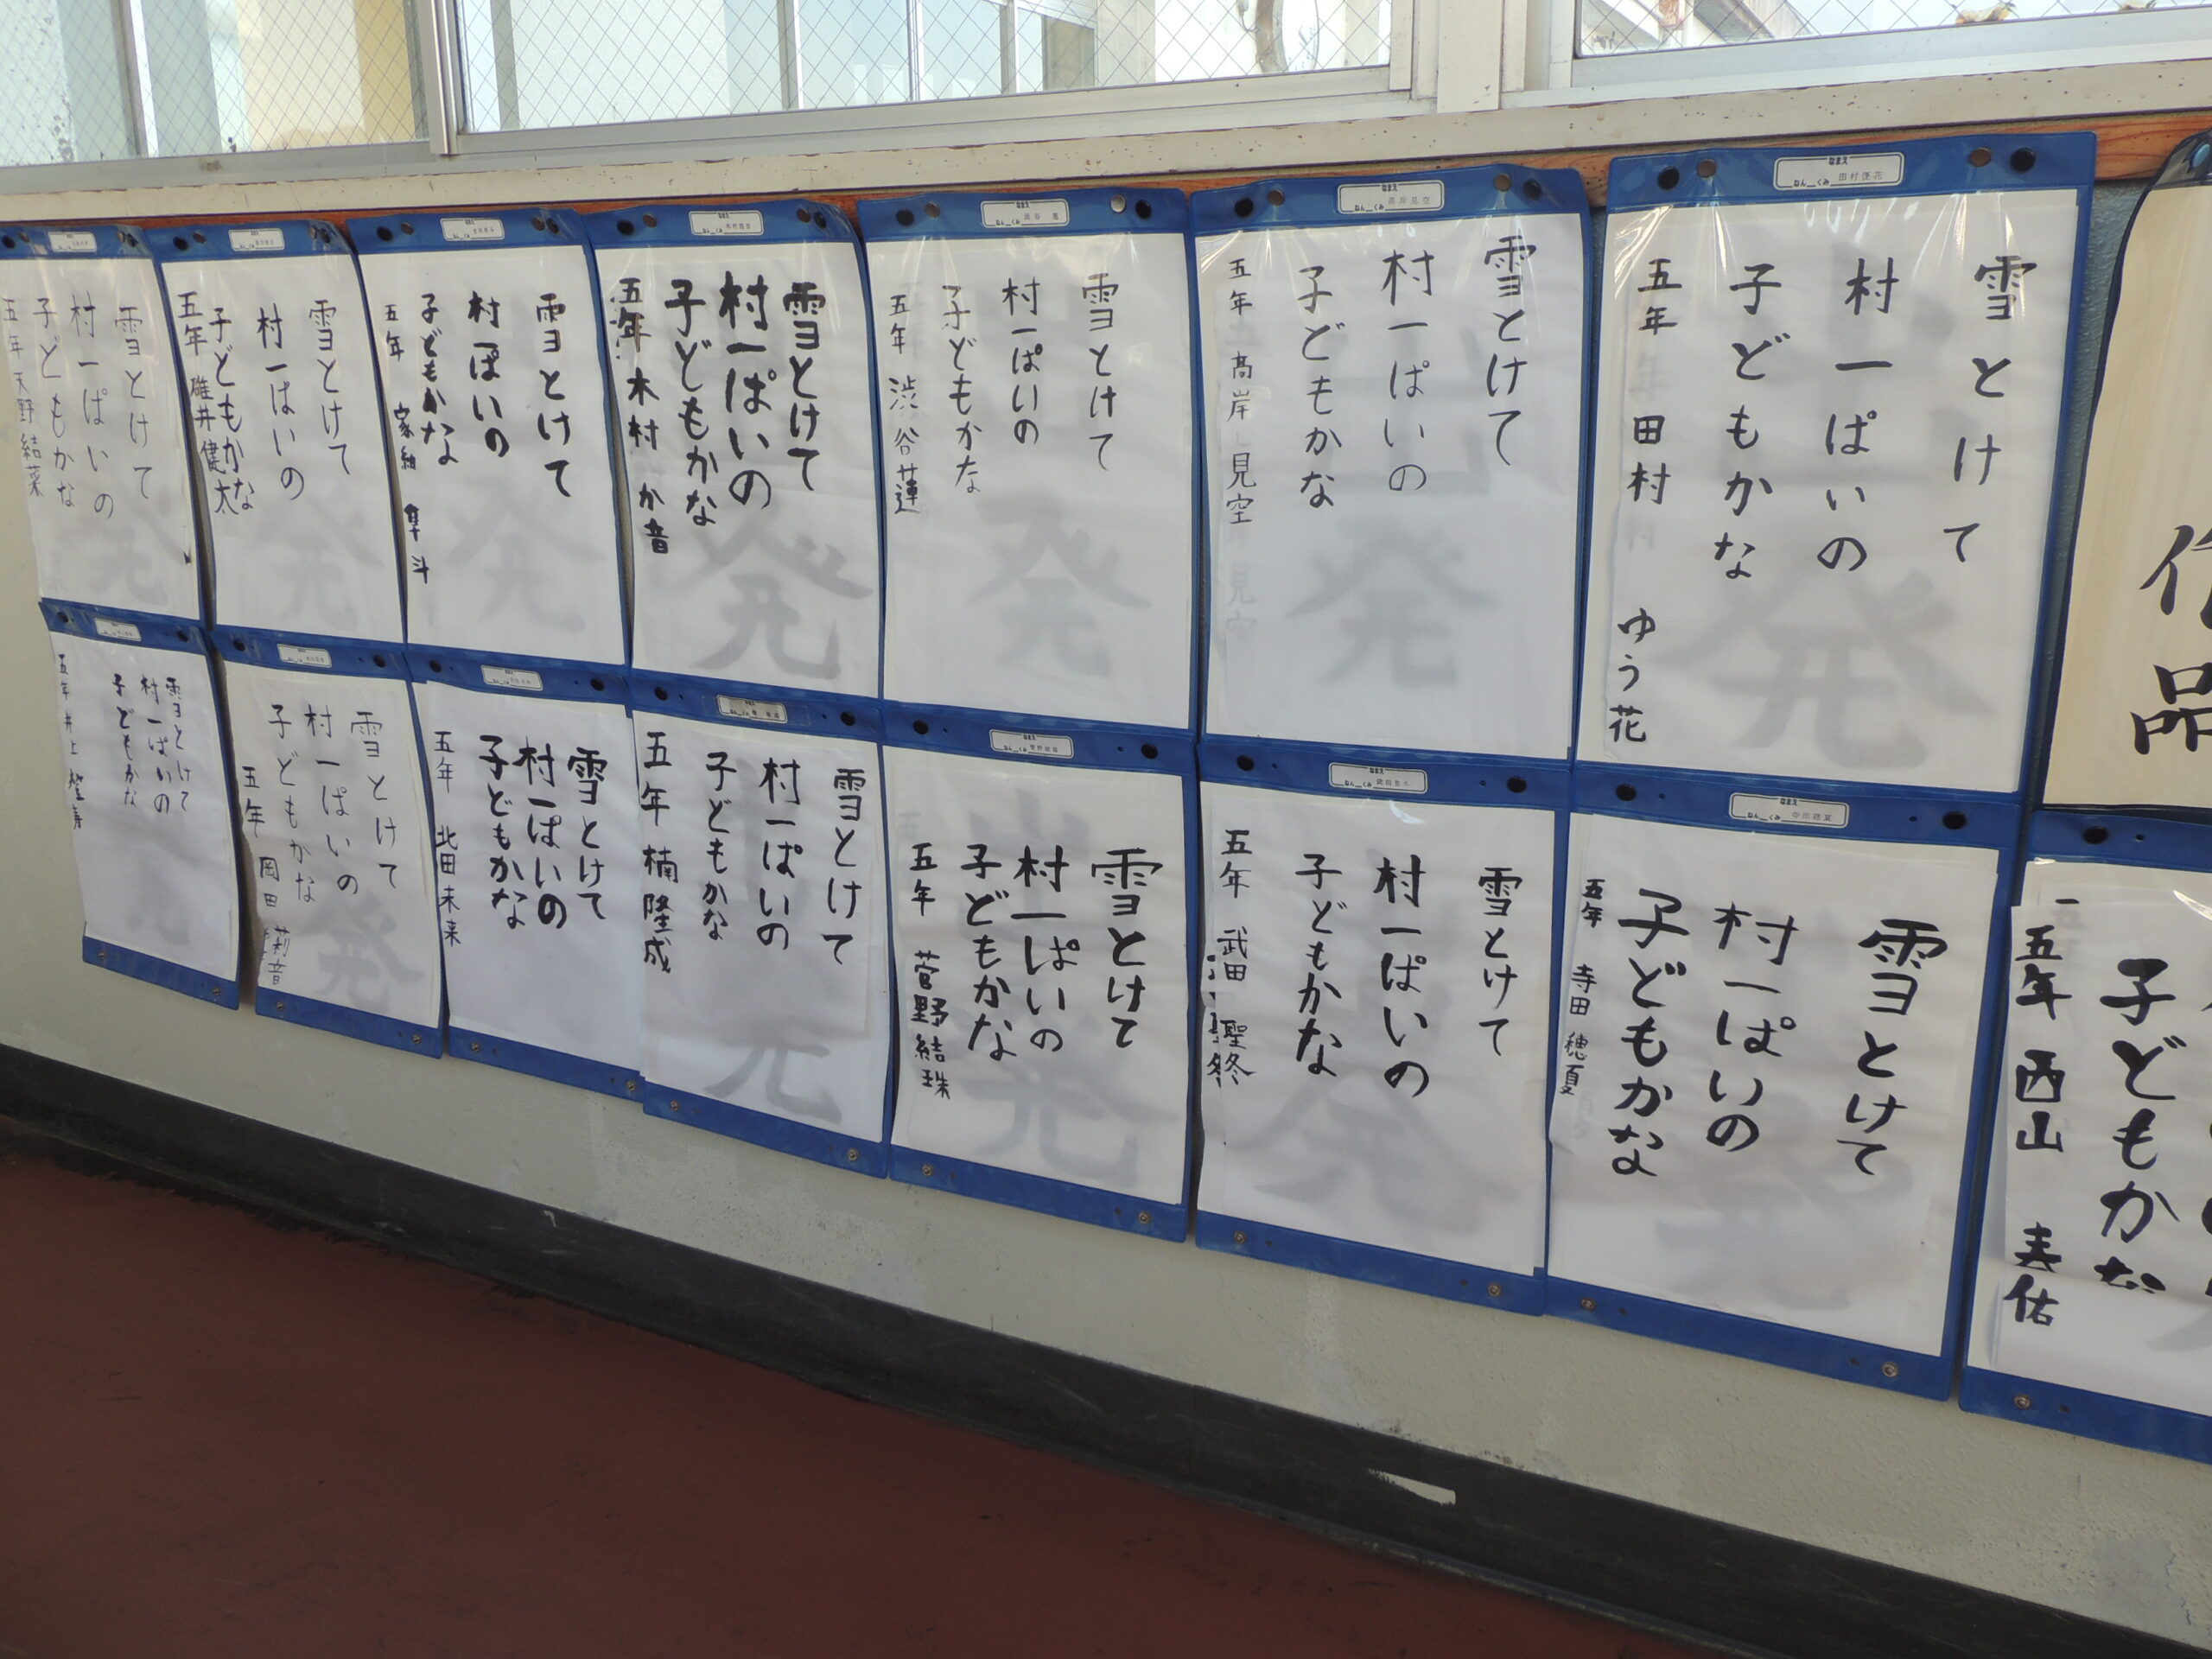 作品
雪とけて
村一ぱいの
子どもかな
五年 田村 ゆう花
雪とけて
村一ぱいの
子どもかな
五年 高岸 見空
雪とけて
村一ぱいの
子どもかな
五年 渋谷 蓮
雪とけて
村一ぱいの
子どもかな
五年 木村 か音
雪とけて
村一ぱいの
子どもかな
五年 隼斗
雪とけて
村一ぱいの
子どもかな
五年 碓井健太
雪とけて
村一ぱいの
子どもかな
五年 天野結菜
子どもかな
五年 西山 寿佑
雪とけて
村一ぱいの
子どもかな
五年 寺田 穂夏
雪とけて
村一ぱいの
子どもかな
五年 武田 聖冬
雪とけて
村一ぱいの
子どもかな
五年 菅野結珠
雪とけて
村一ぱいの
子どもかな
五年 楠 隆成
雪とけて
村一ぱいの
子どもかな
五年 北田未来
雪とけて
村一ぱいの
子どもかな
五年 岡田 莉音
雪とけて
村一ぱいの
子どもかな
五年 井上